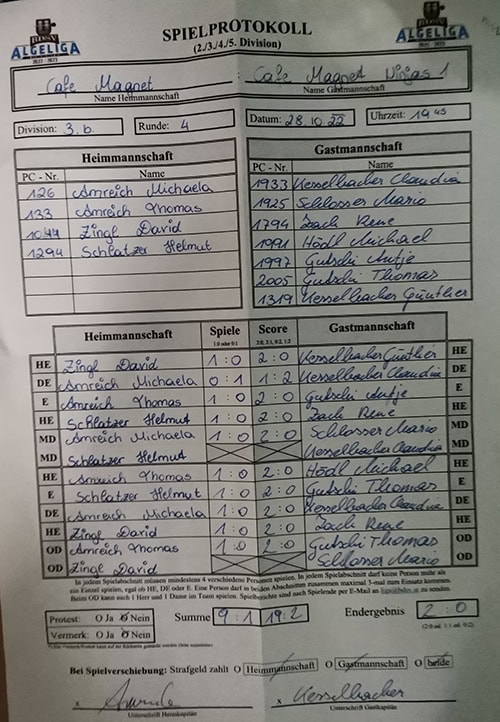 SPIELPROTOKOLL
ALGELIGA (2./3./4./5. Division) ALGELIGA
Cafe Magnet : Cafe Magnet Ninjas 1
Name Heimmannschaft Name Gastmannschaft
Division: 3.b. Runde: 4 Datum: 28.10.22 Uhrzeit: 19 45
Heimmannschaft Gastmannschaft
PC - Nr. Name PC - Nr. Name
126 Amreich Michaela 1933 Kesselbacher Claudia
133 Amreich Thomas 1925 Schlosser Mario
Zingl David 1794 Zach Rene
1294 Schlatzer Helmut 1991 Hödl Michael
1997 Gutschi Antje
2005 Gutschi Thomas
1319 Kesselbacher Günther
Heimmannschaft Spiele Score Gastmannschaft
1:0 oder 0:1 2:0, 2:1, 0:2, 1:2
HE Zingl David 1:0 2:0 Kesselbacher Günther HE
DE Amreich Michaela 0:1 1:2 Kesselbacher Claudia DE
E Amreich Thomas 1:0 2:0 Gutschi Antje E
HE Schlatzer Helmut 1:0 2:0 Zach Rene HE
MD Amreich Michaela 1:0 2:0 Schlosser Mario MD
MD Schlatzer Helmut Kesselbacher Claudia MD
HE Amreich Thomas 1:0 2:0 Hödl Michael HE
E Schlatzer Helmut 1:0 2:0 Gutschi Thomas E
DE Amreich Michaela 1:0 2:0 Kesselbacher Claudia DE
HE Zingl David 1:0 2:0 Zach Rene HE
OD Amreich Thomas 1:0 2:0 Gutschi Thomas OD
OD Zingl David Schlosser Mario OD
In jedem Spielabschnitt müssen mindestens 4 verschiedene Personen spielen. In jedem Spielabschnitt darf keine Person mehr als
ein Einzel spielen, egal ob HE, DE oder E. Eine Person darf in beiden Abschnitten zusammen maximal 3-mal zum Einsatz kommen.
Beim OD kann auch 1 Herr und 1 Dame im Team spielen. Spielberichte sind nach Spielende per E-Mail an zu senden.
Protest: O Ja O Nein Summe 9:1 19:2 Endergebnis 2:0
Vermerk: O Ja O Nein (2:0 od. 1:1 od. 0:2)
Bei Spielverschiebung: Strafgeld zahlt O Heimmannschaft O Gastmannschaft O beide
x x Kesselbacher
Unterschrift Heimkapitän Unterschrift Gastkapitän